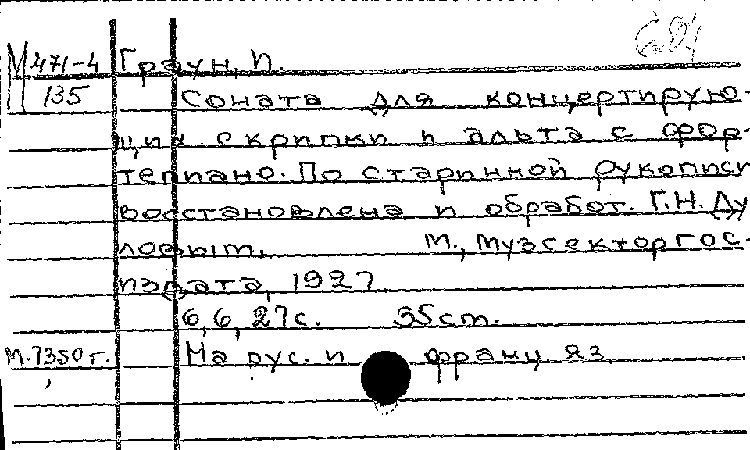 М 471-4 Граун, И.
135 Соната для концертирую-
щих скрипки и альта с фор-
тепиано. По старинной рукописи
восстановлена и обработ. Г.Н. Ду
ловым. М., Музсекторгос-
издата, 1927.
6, 6, 27 с. 35 см.
М.7350 г. На рус. и франц яз